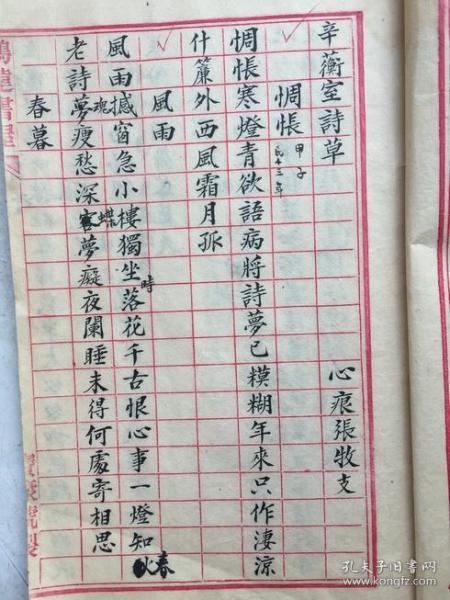 辛蘅室詩草 心痕張牧支
惆悵 甲子 民十三年
惆悵寒燈青欲語病將詩夢已模糊年來只作淒涼
什簾外西風霜月孤
風雨
風雨撼窗急小樓獨坐時落花千古恨心事一燈知 春
老詩夢魂瘦愁深蝶夢癡夜闌睡未得何處寄相思
春暮
孔夫子旧书网